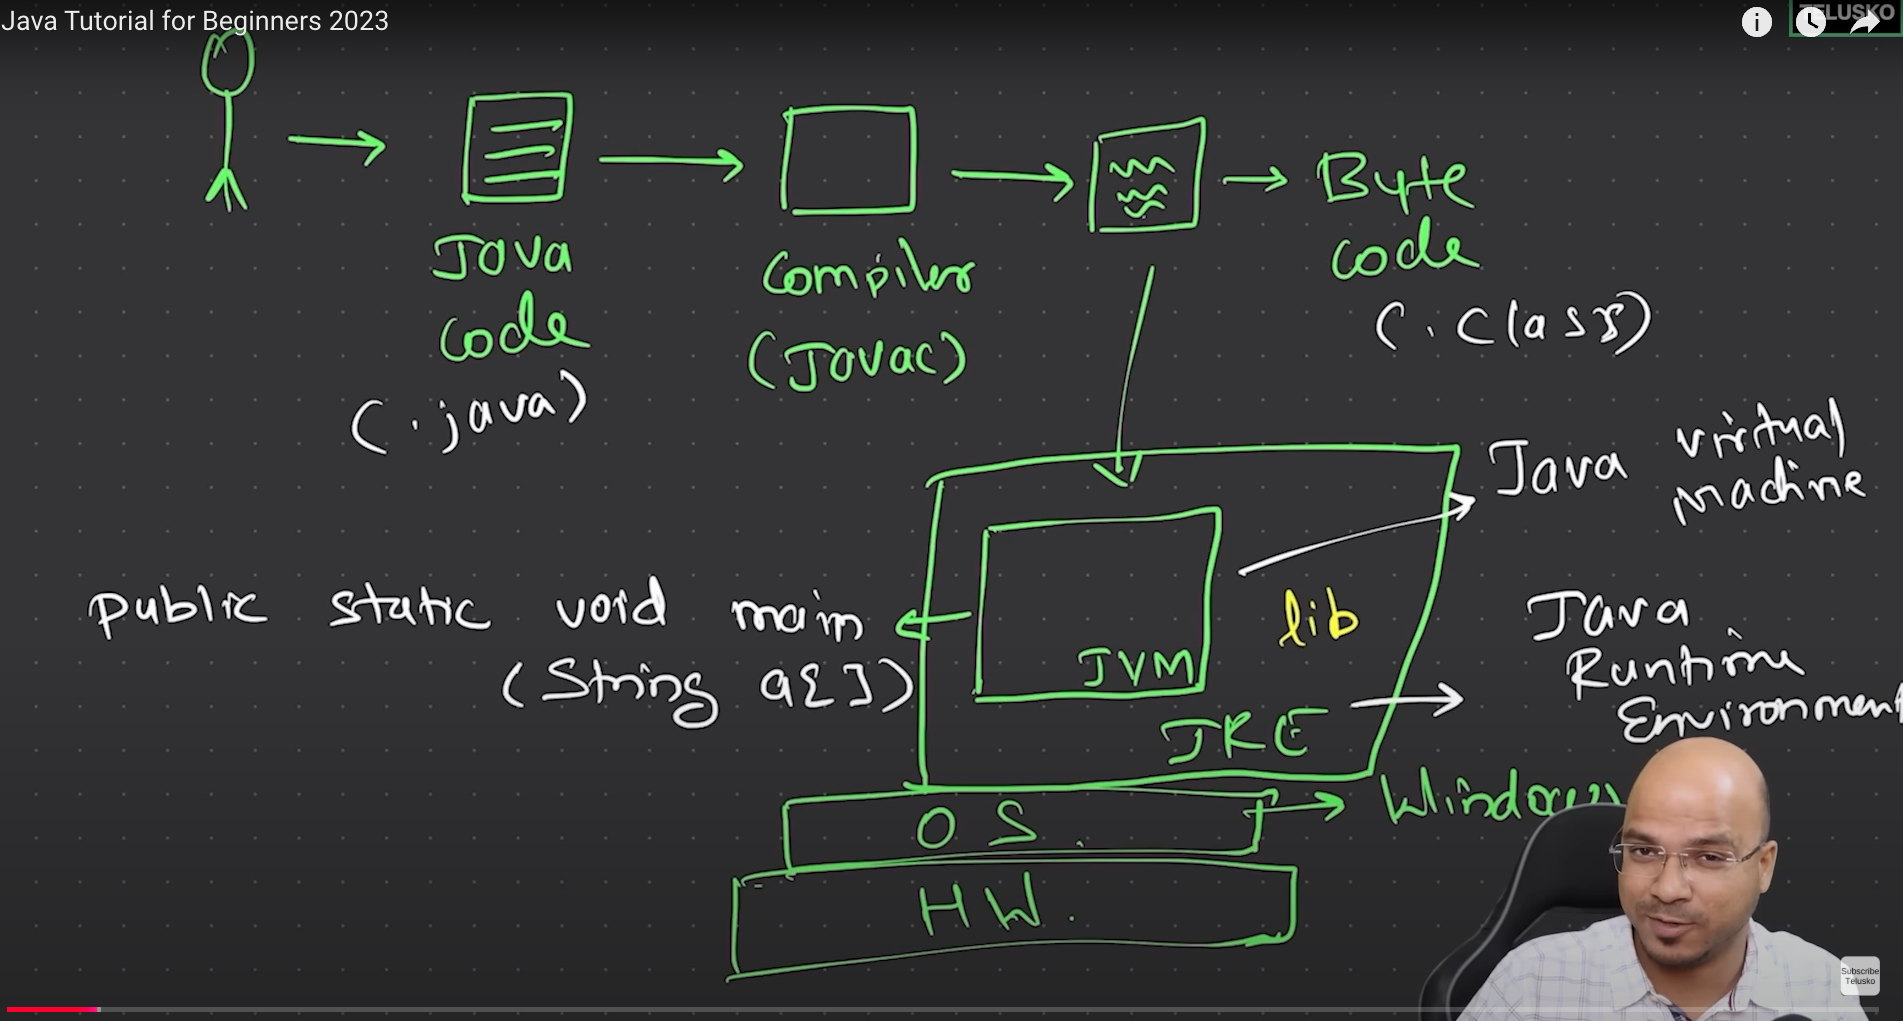 Java Tutorial for Beginners 2023
TELUSKO
Java
code
(.java)
Compiler
(Javac)
Byte
code
(.class)
Java virtual
machine
public static void main
(String a[])
JVM
lib
JRE
Java
Runtime
Environment
OS.
Windows
HW.
Subscribe
Telusko